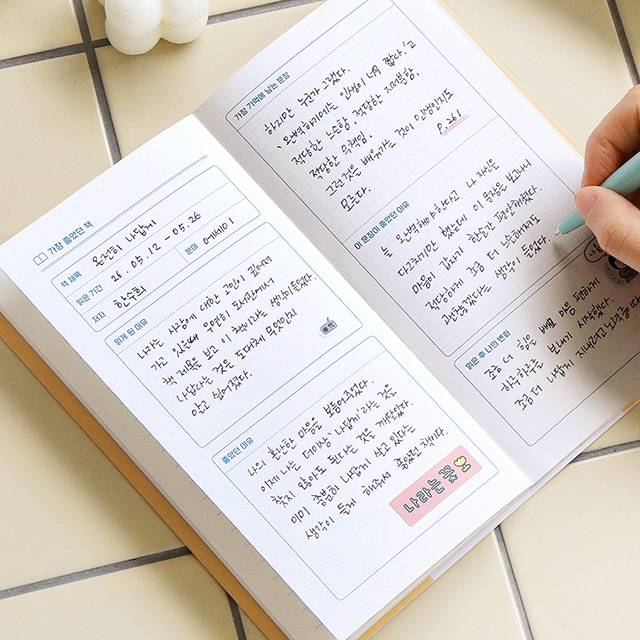 가장 좋았던 책
책 제목 온전히 나답게
읽은 기간 26. 05. 12 - 05. 26
저자 한수희 분야 에세이
읽게 된 이유
나라는 사람에 대한 고민이 깊어져
가고 있는데 우연히 도서관에서
책 제목을 보고 이 책이라는 생각이 들었다.
나답다는 것은 도대체 무엇인지
안고 넘어졌다.
좋았던 이유
나의 혼란한 마음을 보듬어주었다.
이제 나는 더이상 '나답게'라는 것을
찾지 않아도 된다는 것을 깨달았다.
이미 충분히 나답게 살고 있다는
생각이 들게 해줘서 좋았던 책이다.
나라는 꽃
가장 기억에 남는 문장
하지만 누군가 그랬다.
'완벽하기에는 인생이 너무 짧다'고
적당한 느슨함, 적당한 지저분함,
적당한 무책임,
그런 것을 배워가는 것이 인생인지도
모른다.
p.261
이 문장이 좋았던 이유
늘 완벽해야한다고 나 자신을
다그치기만 했는데 이 문장을 보고나니
마음이 갑자기 한순간 편안해졌다.
적당하게 조금 더 느슨해져도
괜찮겠다는 생각이 들었다.
읽은 후 나의 변화
조금 더 힘을 빼고 마음 편하게
하루하루를 보내기 시작했다.
조금 더 나답게 지내려고 노력중이